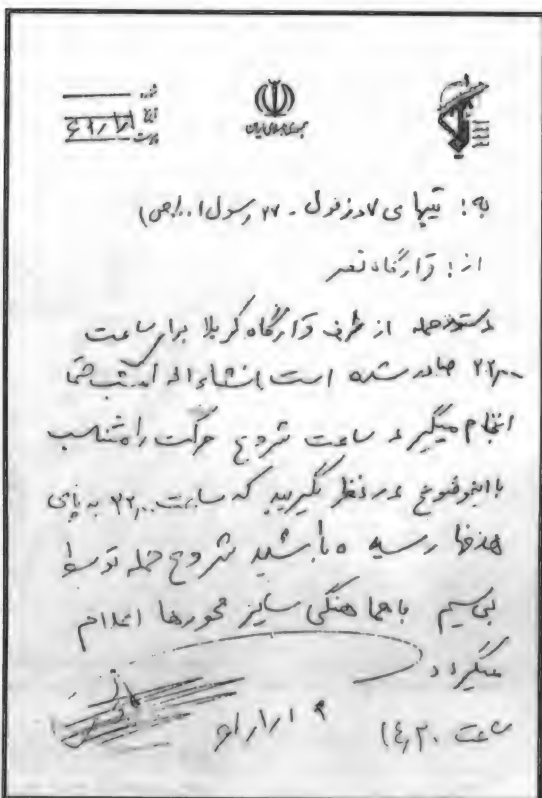 شماره
تاریخ ۶۱/۱/۱
پیوست
جمهوری اسلامی ایران
به: تیپهای ۷ دزفول - ۲۷ رسول ا...(ص)
از: قرارگاه نصر
دستور حمله از طرف قرارگاه کربلا برای ساعت
۲۲,۰۰ صادر شده است انشاءاله امشب حتما
انجام میگیرد ساعت شروع حرکت را متناسب
با این موضوع در نظر بگیرید که ساعت ۲۲,۰۰ به پای
هدفها رسیده باشید شروع حمله توسط
بی سیم با هماهنگی سایر محورها اعلام
میگردد
ساعت ۱۴,۳۰